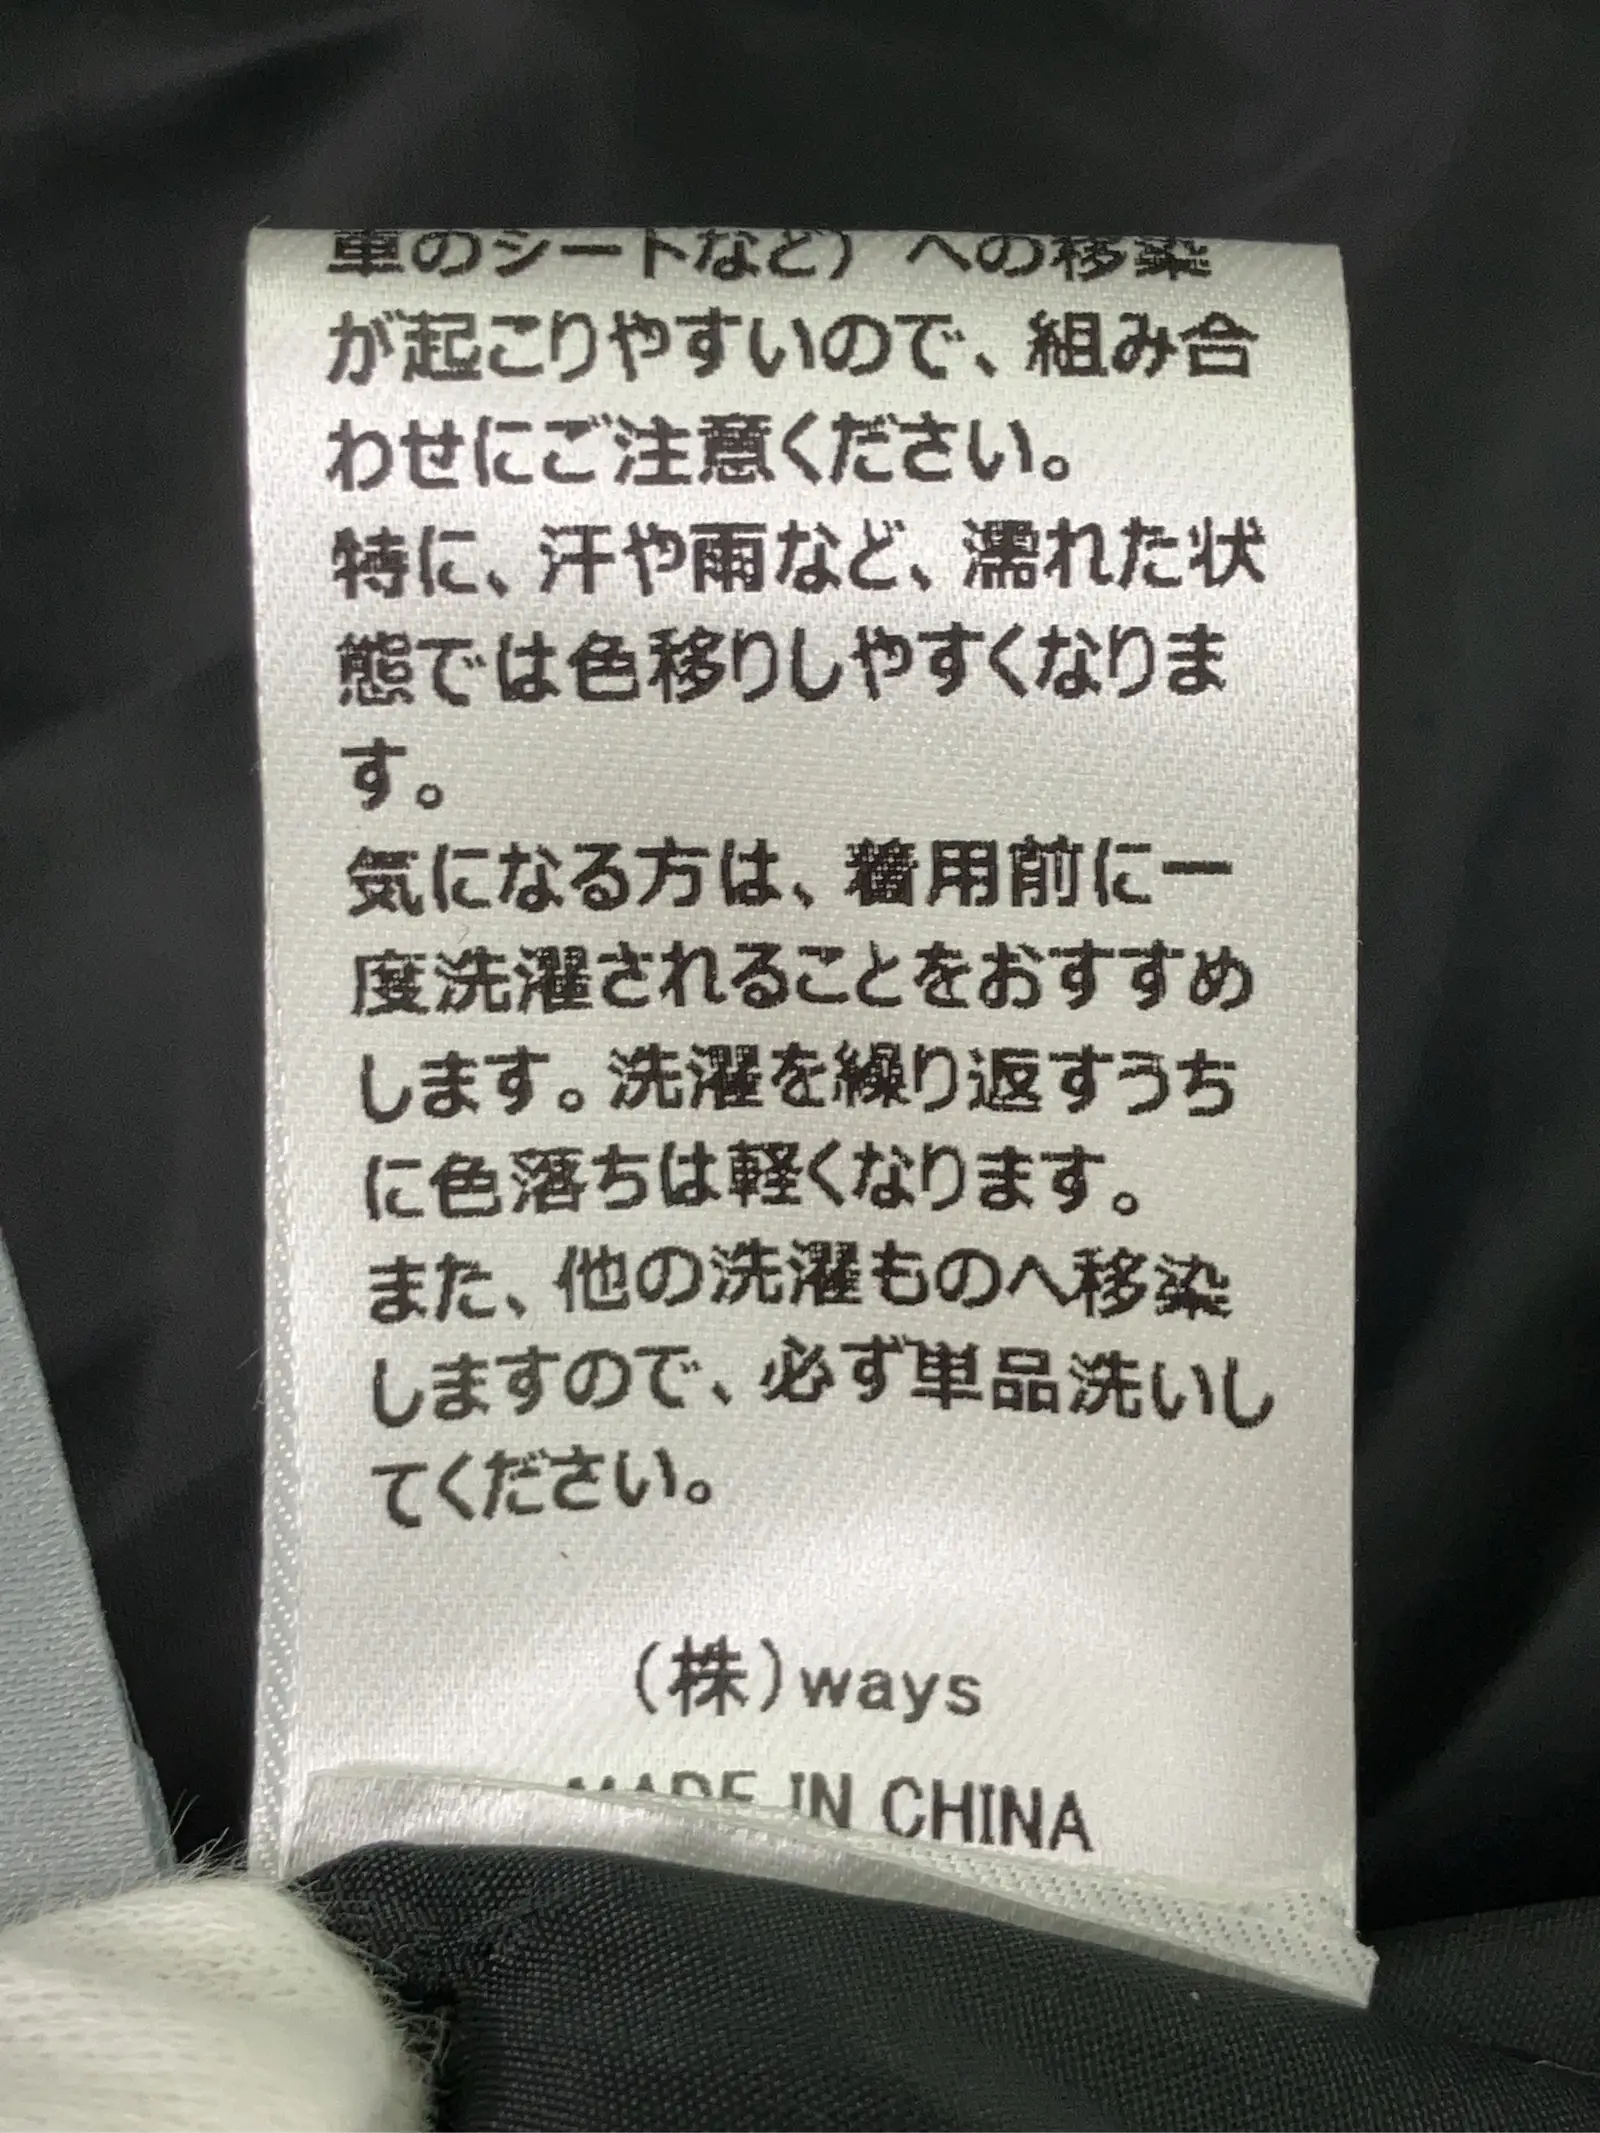 車のシートなど）への移染
が起こりやすいので、組み合
わせにご注意ください。
特に、汗や雨など、濡れた状
態では色移りしやすくなりま
す。
気になる方は、着用前に一
度洗濯されることをおすすめ
します。洗濯を繰り返すうち
に色落ちは軽くなります。
また、他の洗濯ものへ移染
しますので、必ず単品洗いし
てください。
（株）ways
MADE IN CHINA